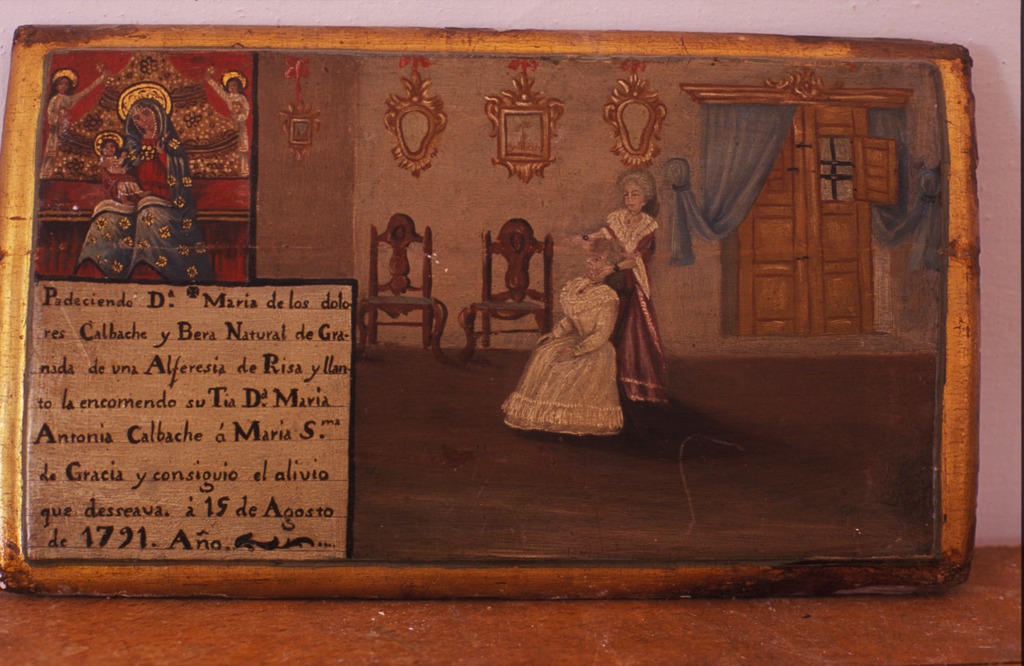 Padeciendo D.ª Maria de los dolo
res Calbache y Bera Natural de Gra-
nada de una Alferesia de Risa y llan-
to la encomendo su Tia D.ª Maria
Antonia Calbache á Maria S.ma
de Gracia y consiguio el alivio
que desseava. à 15 de Agosto
de 1791. Año.